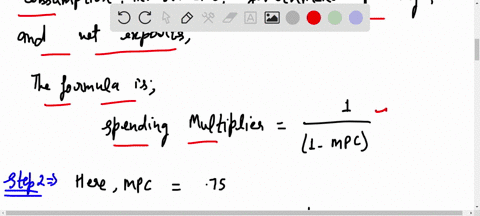 consumption,
and net exports,
The formula is;
spending Multiplier = 1 / (1 - MPC)
Step 2 ⇒ Here, MPC = .75